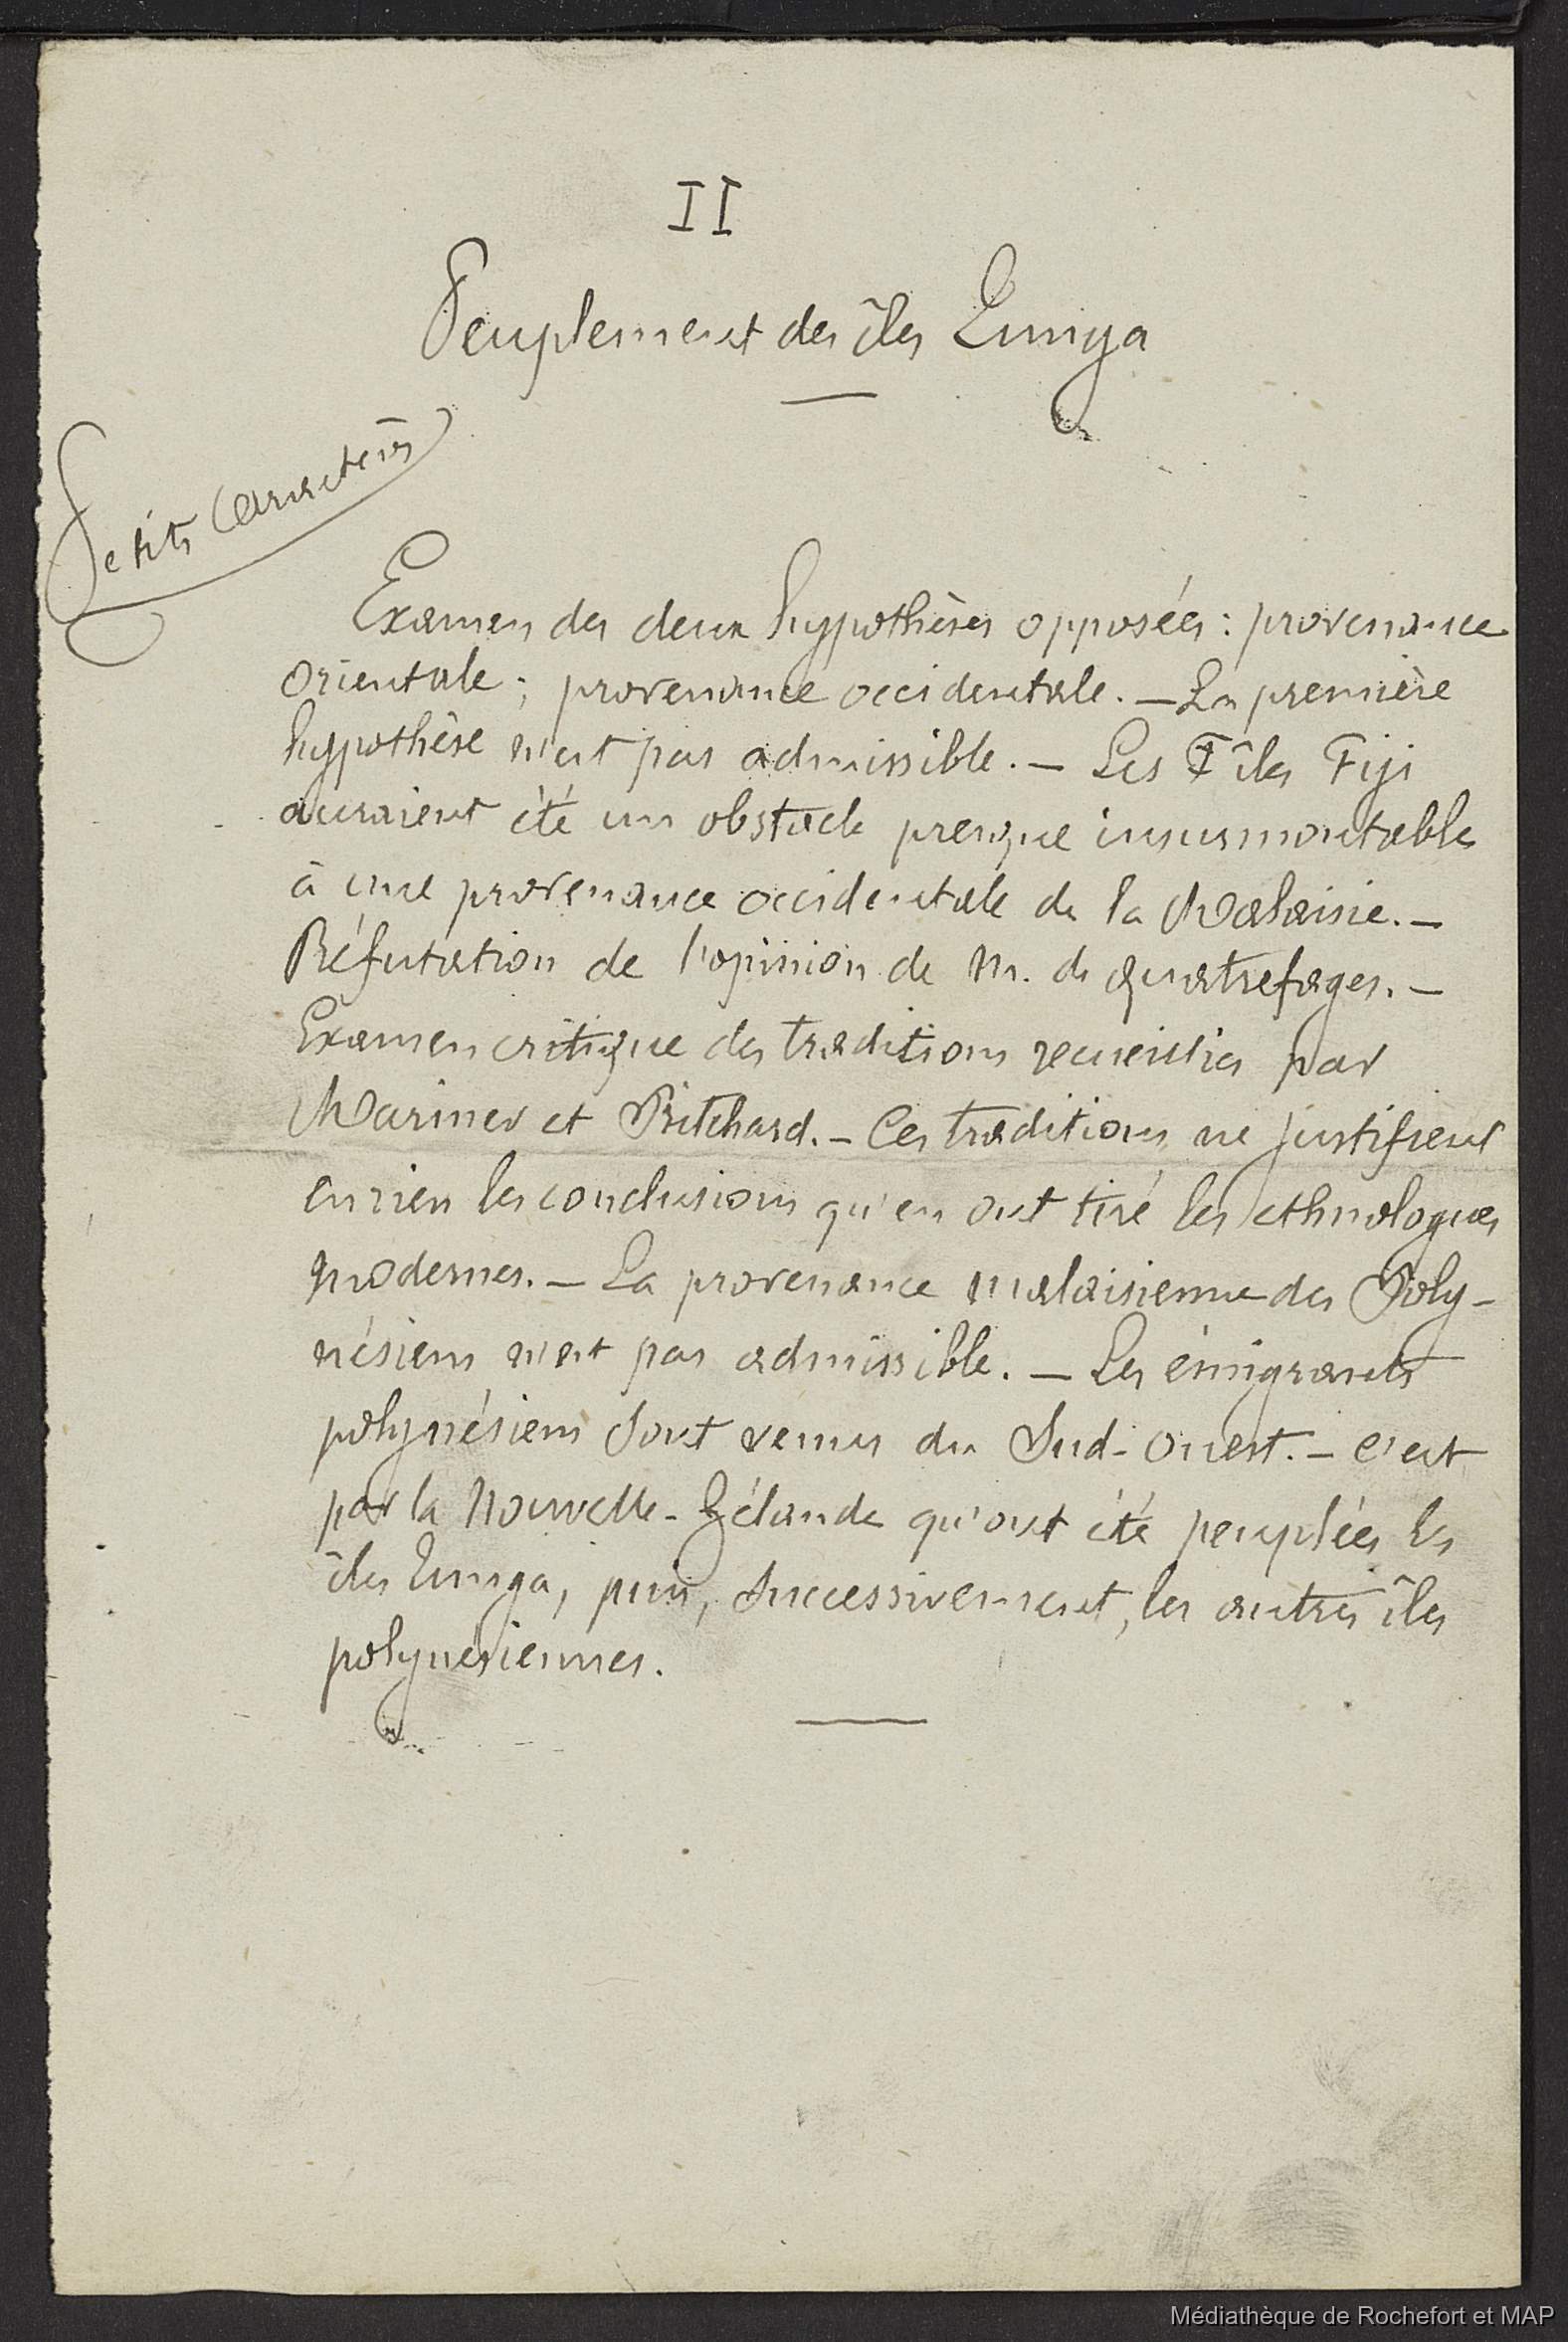 II
Peuplement des îles Tunga
Petits caractères
Examen des deux hypothèses opposées : provenance
orientale ; provenance occidentale. — La première
hypothèse n'est pas admissible. — Les îles Fiji
auraient été un obstacle presque insurmontable
à une provenance occidentale de la Malaisie. —
Réfutation de l'opinion de M. de Quatrefages. —
Examen critique des traditions recueillies par
Mariner et Pritchard. — Ces traditions ne justifient
en rien les conclusions qu'en ont tiré les ethnologues
modernes. — La provenance malaisienne des Poly-
nésiens n'est pas admissible. — Les émigrants
polynésiens sont venus du Sud-Ouest. — C'est
par la Nouvelle-Zélande qu'ont été peuplées les
îles Tunga, puis, successivement, les autres îles
polynésiennes.
Médiathèque de Rochefort et MAP